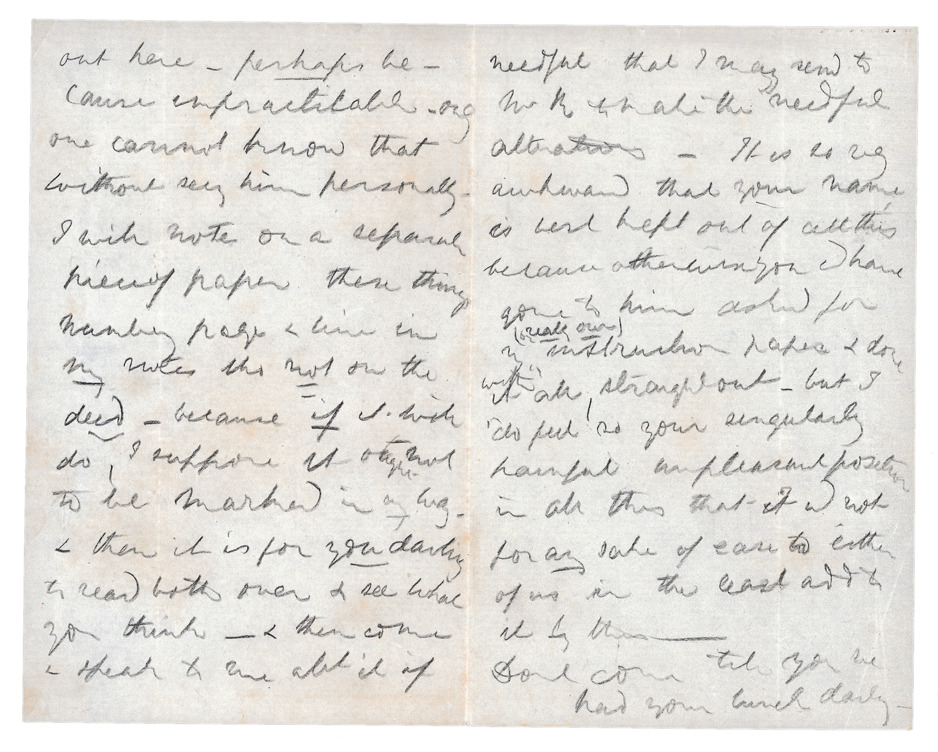 out here - perhaps be-
cause impracticable - any
one cannot know that
without seeg him personally.
I will note on a separate
piece of paper these things
numbeg page & line in
my notes tho' not on the
deed - because if it will
do, I suppose it ought not
to be marked in any way.
& then it is for you darling
to read both over & see what
you think - & then come
& speak to me abt it if
needful that I may send to
Mr R to make the needful
alterations - It is so very
awkward that your name
is best kept out of all this
because otherwise you cd have
gone to him asked for
(really our)
my instruction paper & done
with it all, straight out - but I
do feel so your singularly
painful unpleasant position
in all this that I wd not
for any sake of ease to either
of us in the least add to
it by this
Dont come till you've
had your lunch darlg -